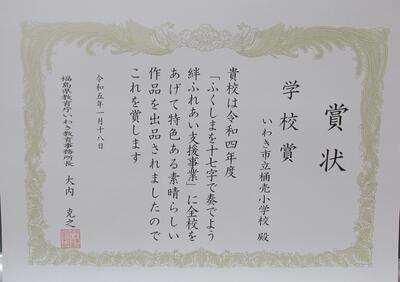 賞状
学校賞
いわき市立桶売小学校 殿
貴校は令和四年度
「ふくしまを十七字で奏でよう
絆ふれあい支援事業」に全校を
あげて特色ある素晴らしい
作品を出品されましたので
これを賞します
令和五年一月十八日
福島県教育庁いわき教育事務所長 大内 克之